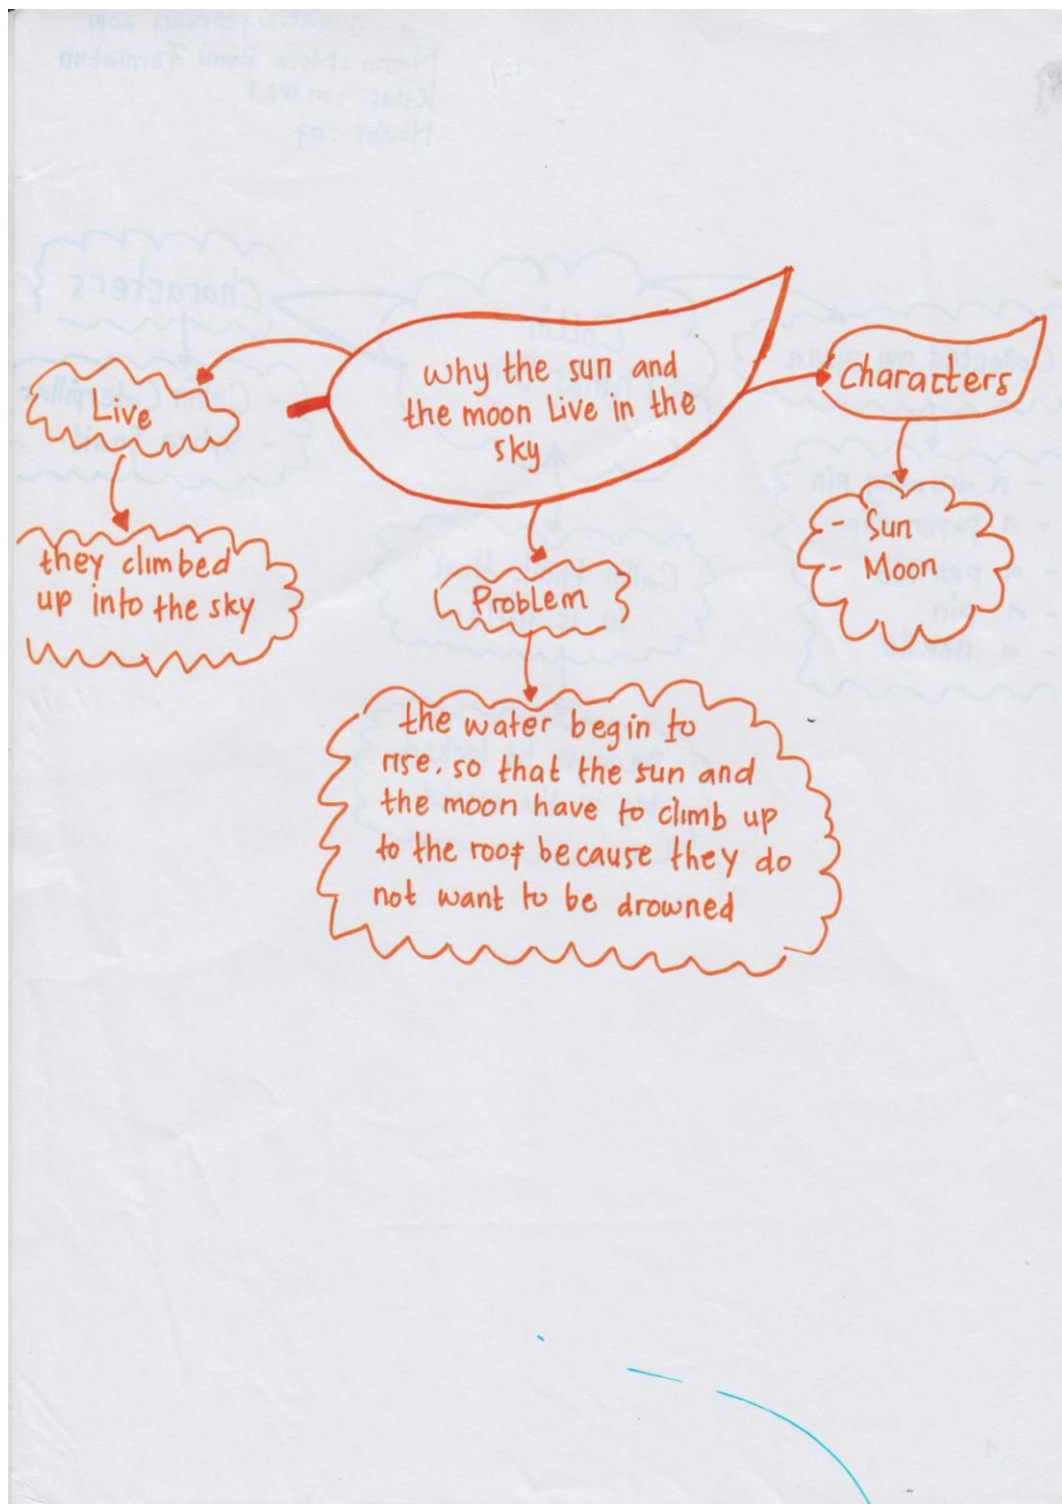 why the sun and
the moon Live in the
sky
Live
they climbed
up into the sky
Problem
the water begin to
rise, so that the sun and
the moon have to climb up
to the roof because they do
not want to be drowned
Characters
- Sun
- Moon